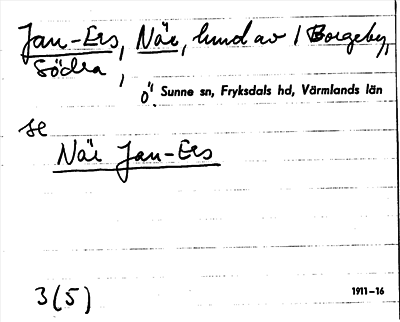 Jan-Ers, Näe, lund av / Borgeby,
Södra,
ö". Sunne sn, Fryksdals hd, Värmlands län
se
Näe Jan-Ers
3(5)
1911–16